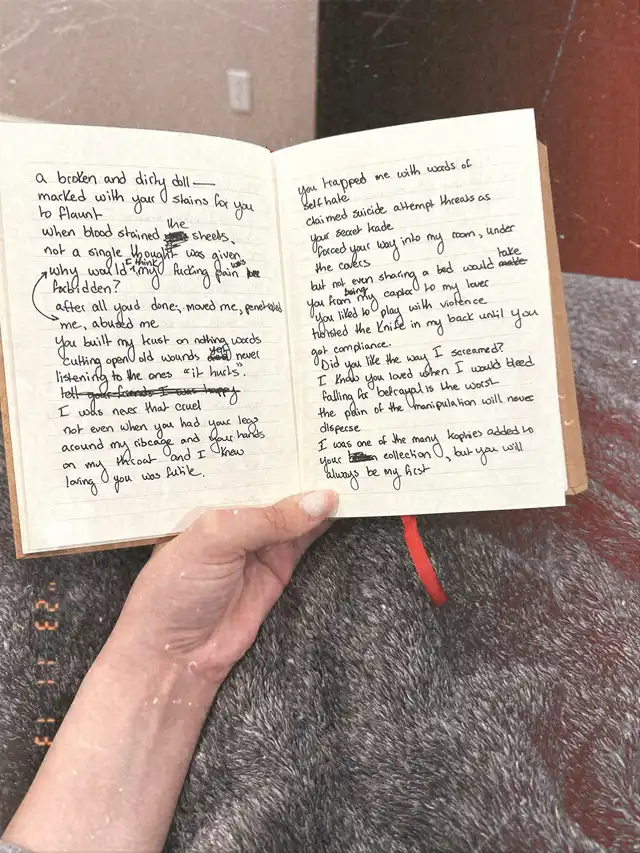 a broken and dirty doll —
marked with your stains for you
to flaunt
when blood stained the sheets,
not a single thought was given
why would I think my fucking pain was
forbidden?
after all you'd done; moved me, penetrated
me, abused me
You built my trust on nothing words
cutting open old wounds yet never
listening to the ones "it hurts".
tell your friends I was happy
I was never that cruel
not even when you had your legs
around my ribcage and your hands
on my throat and I knew
loving you was futile.
you trapped me with words of
self hate
claimed suicide attempt threats as
your secret trade
forced your way into my room, under
the covers
but not even sharing a bed would take
you from being my captor to my lover
you liked to play with violence
twisted the knife in my back until you
got compliance.
Did you like the way I screamed?
I know you loved when I would bleed
falling for betrayal is the worst
the pain of the manipulation will never
disperse
I was one of the many trophies added to
your collection, but you will
always be my first
'23 11 13